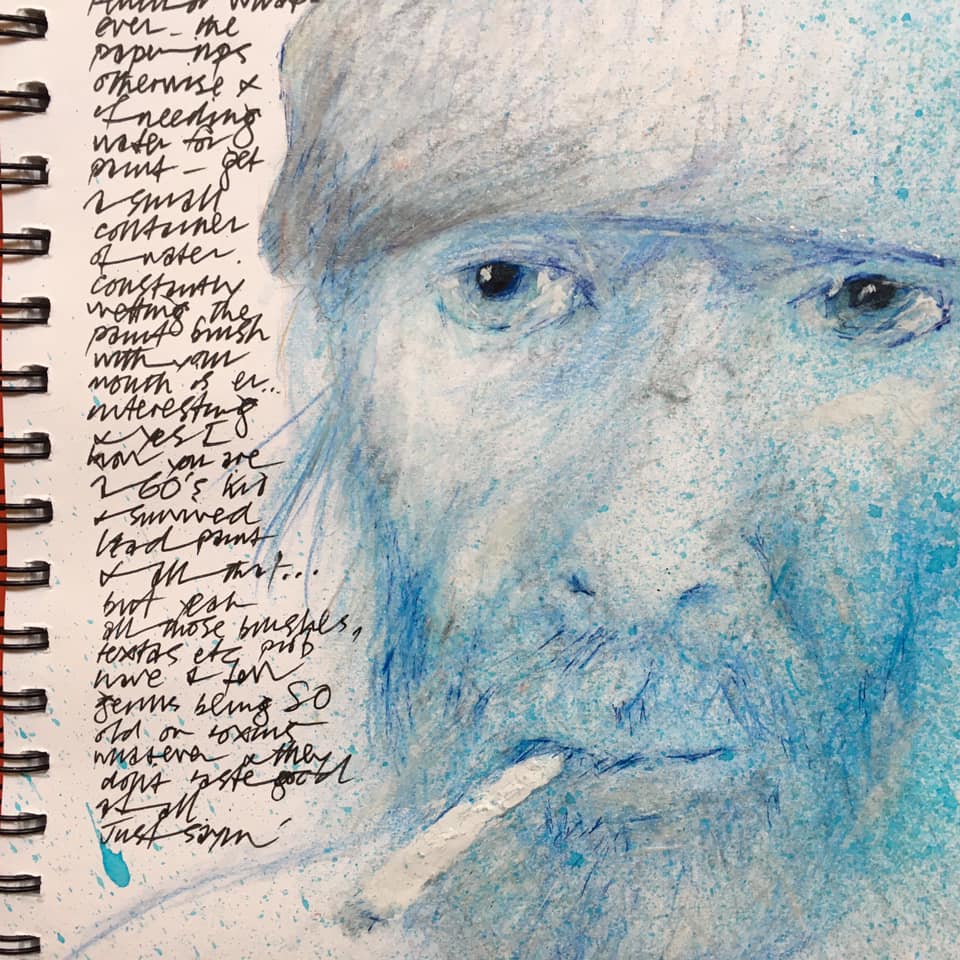 ever - the
paper rips
otherwise &
if needing
water for
paint - get
a small
container
of water.
constantly
wetting the
paint brush
with your
mouth is er..
interesting
& yes I
know you are
a 60's kid
& survived
lead paint
& all that...
but yeah
all those brushes,
textas etc prob
have a few
germs being SO
old or toxins
whatever & they
don't taste good
at all
Just sayin'